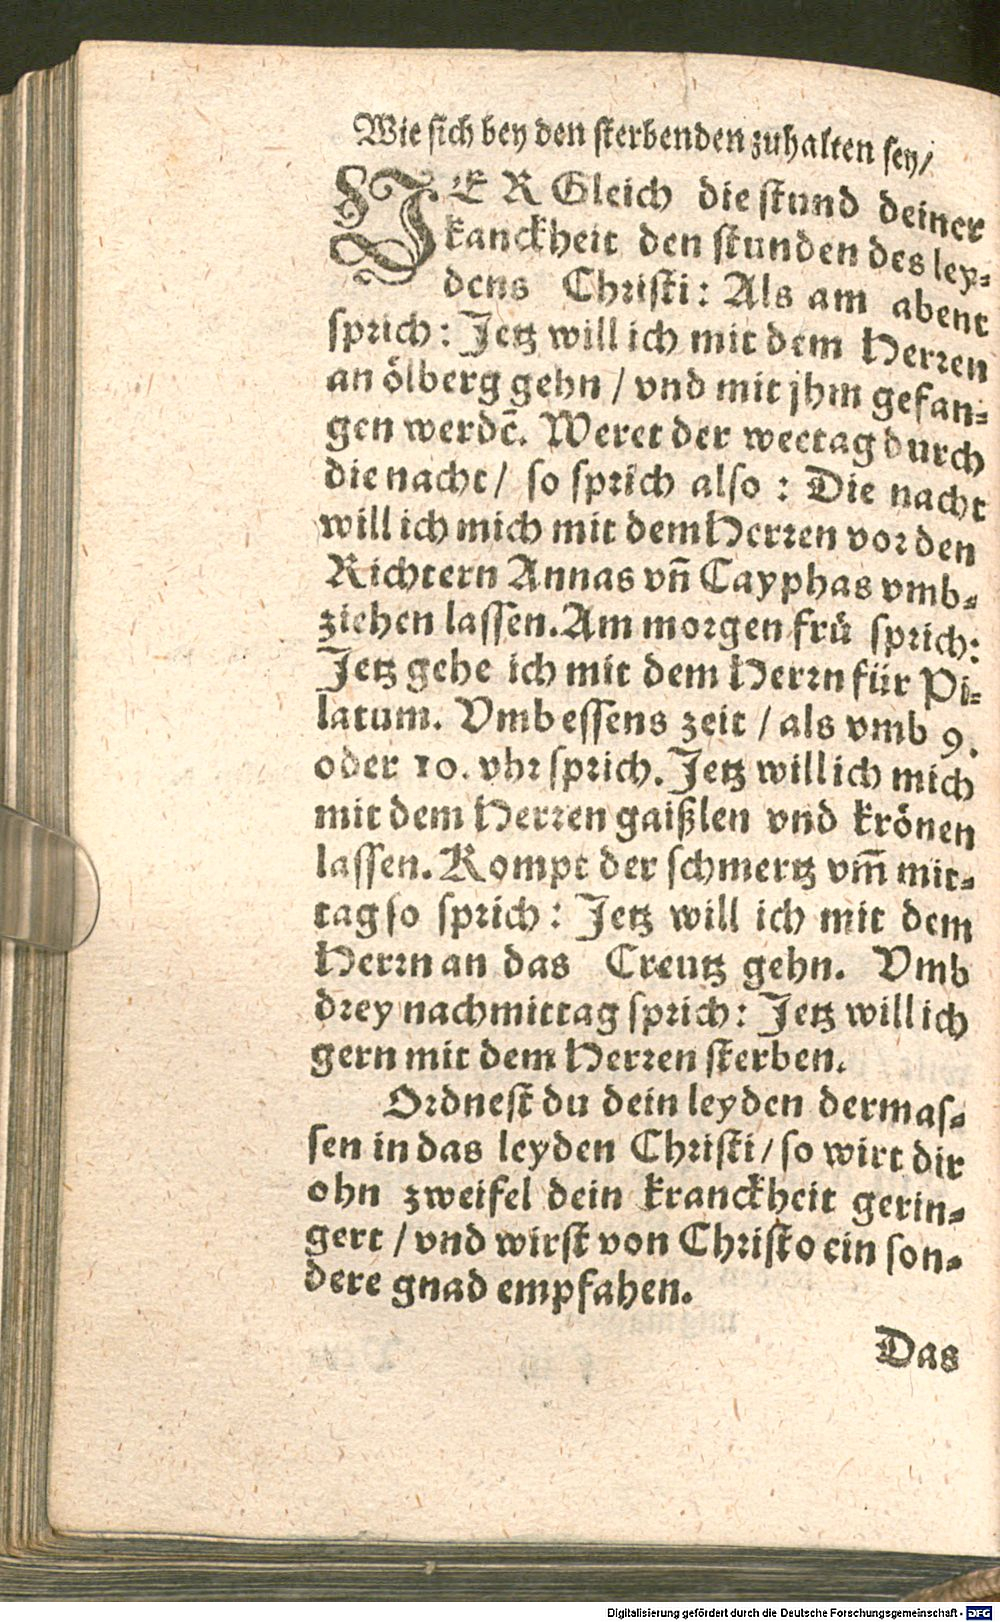 Wie sich bey den sterbenden zuhalten sey/
JER Gleich die stund deiner
kanckheit den stunden des ley-
dens Christi: Als am abent
sprich: Jetz will ich mit dem Herren
an ölberg gehn / vnd mit jhm gefan-
gen werdē. Weret der weetag durch
die nacht / so sprich also : Die nacht
will ich mich mit dem Herren vor den
Richtern Annas vn̄ Cayphas vmb-
ziehen lassen. Am morgen frü sprich:
Jetz gehe ich mit dem Herrn für Pi-
latum. Vmb essens zeit / als vmb 9.
oder 10. vhr sprich. Jetz will ich mich
mit dem Herren gaißlen vnd krönen
lassen. Kompt der schmertz vm̄ mit-
tag so sprich : Jetz will ich mit dem
Herrn an das Creutz gehn. Vmb
drey nachmittag sprich: Jetz will ich
gern mit dem Herren sterben.
Ordnest du dein leyden dermas-
sen in das leyden Christi / so wirt dir
ohn zweifel dein kranckheit gerin-
gert / vnd wirst von Christo ein son-
dere gnad empfahen.
Das
Digitalisierung gefördert durch die Deutsche Forschungsgemeinschaft - DFG